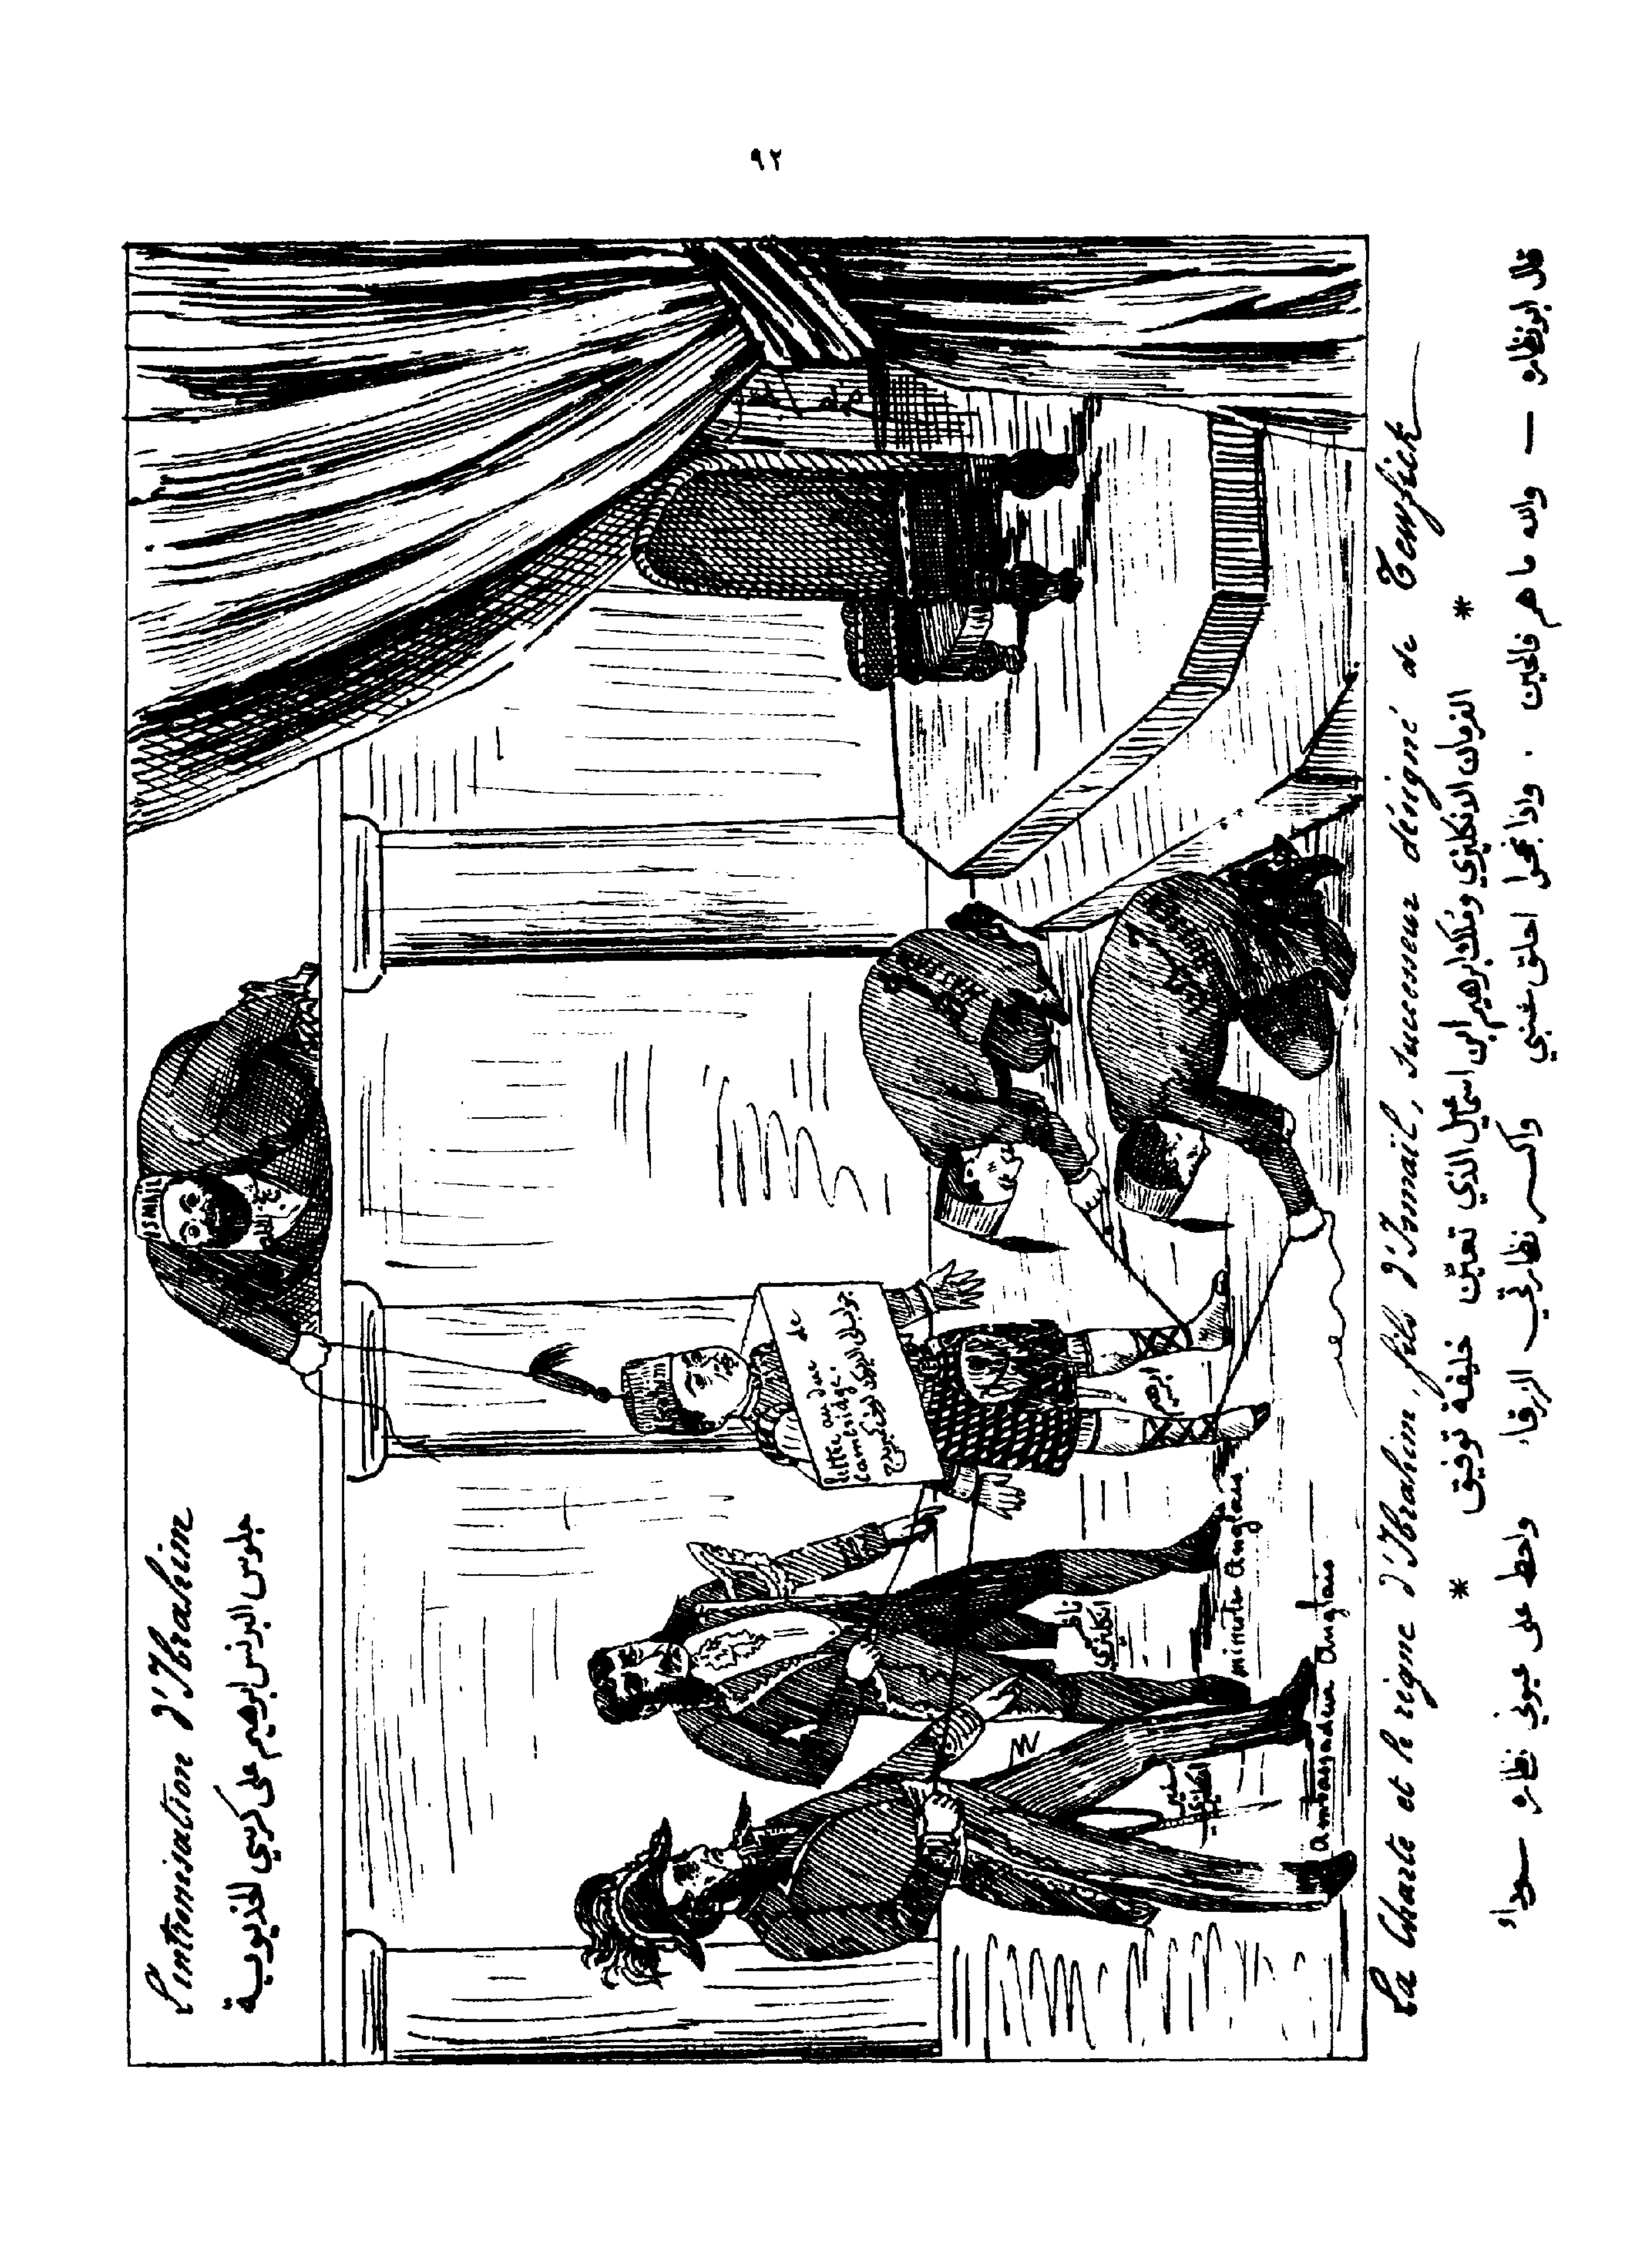 ٩٢
L'intronisation d'Ibrahim
جلوس البرنس ابرهيم على كرسي الخديوية
ISMAIL
Ibrahim
lettre au duc de
Cambridge.
ابرهيم
ناظر
انكليزي
ministre Anglais
سفير
انكليزي
ambassadeur Anglais
La Charte et le règne d'Ibrahim, fils d'Ismaïl, successeur désigné de Tewfick
الفرمان الانكليزي وتملك ابرهيم ابن اسماعيل الذي تعيّن خليفة توفيق
* *
قال ابو نظاره — والله ما هم فالحين . واذا نجحوا احلق شنبي واكسر نظارتي الزرقاء واحط على عيوني نظاره سوداء